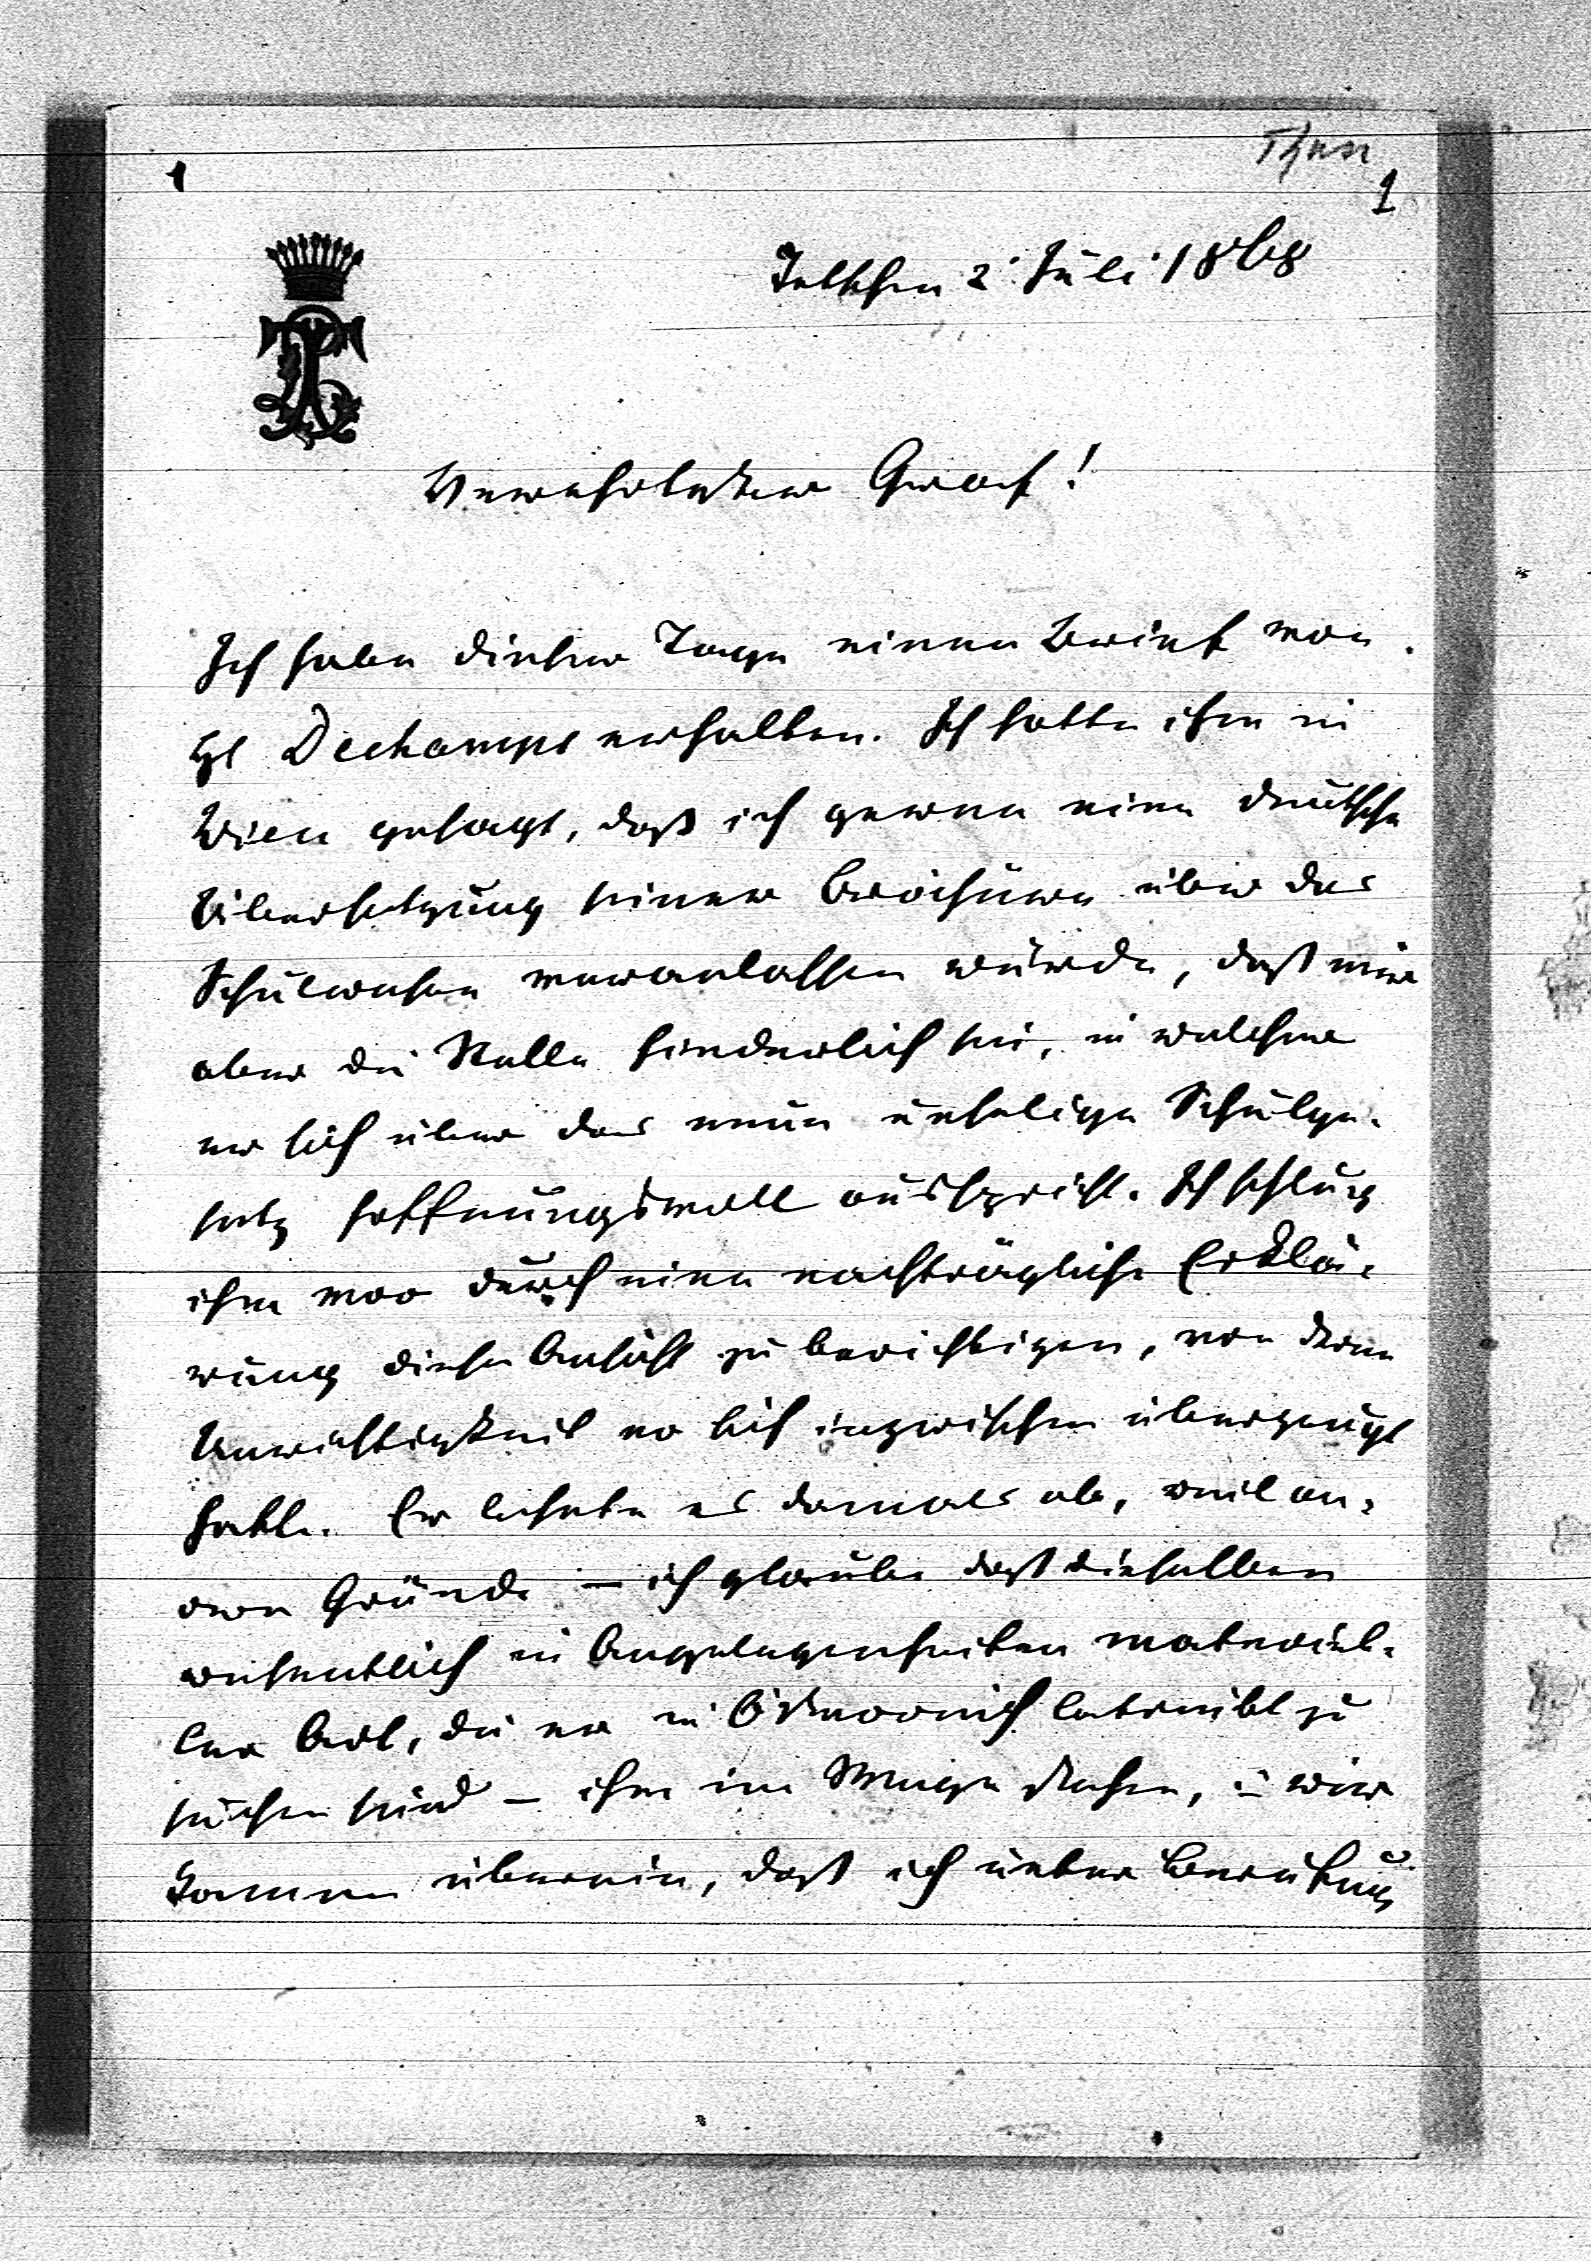 Thun
1
1
Tetschen 2 Juli 1868
Verehrtester Graf!
Ich habe dieser Tage einen Brief von
H Dechamps erhalten. Ich hatte ihm in
Wien gesagt, daß ich gerne eine deutsche
Übersetzung seiner Brochüre über das
Schulwesen veranlassen würde, daß mir
aber die Stelle hinderlich sei, in welcher
er sich über das neue unselige Schulge-
setz hoffnungsvoll ausspricht. Ich schlug
ihm vor durch eine nachträgliche Erklä-
rung diese Ansicht zu berichtigen, von deren
Unrichtigkeit er sich inzwischen überzeugt
hatte. Er lehnte es damals ab, weil an-
dere Gründe – ich glaube daß dieselben
wesentlich in Angelegenheiten materiel-
ler Art, die er in Österreich betreibt zu
suchen sind – ihm im Wege stehen, u wir
kamen überein, daß ich unter Berufung